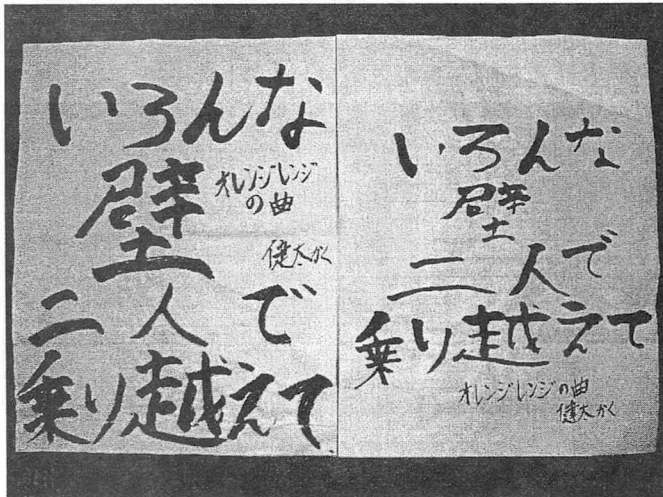 いろんな
壁
オレンジレンジ
の曲
健太かく
二人で
乗り越えて
いろんな
壁
二人で
乗り越えて
オレンジレンジの曲
健太かく